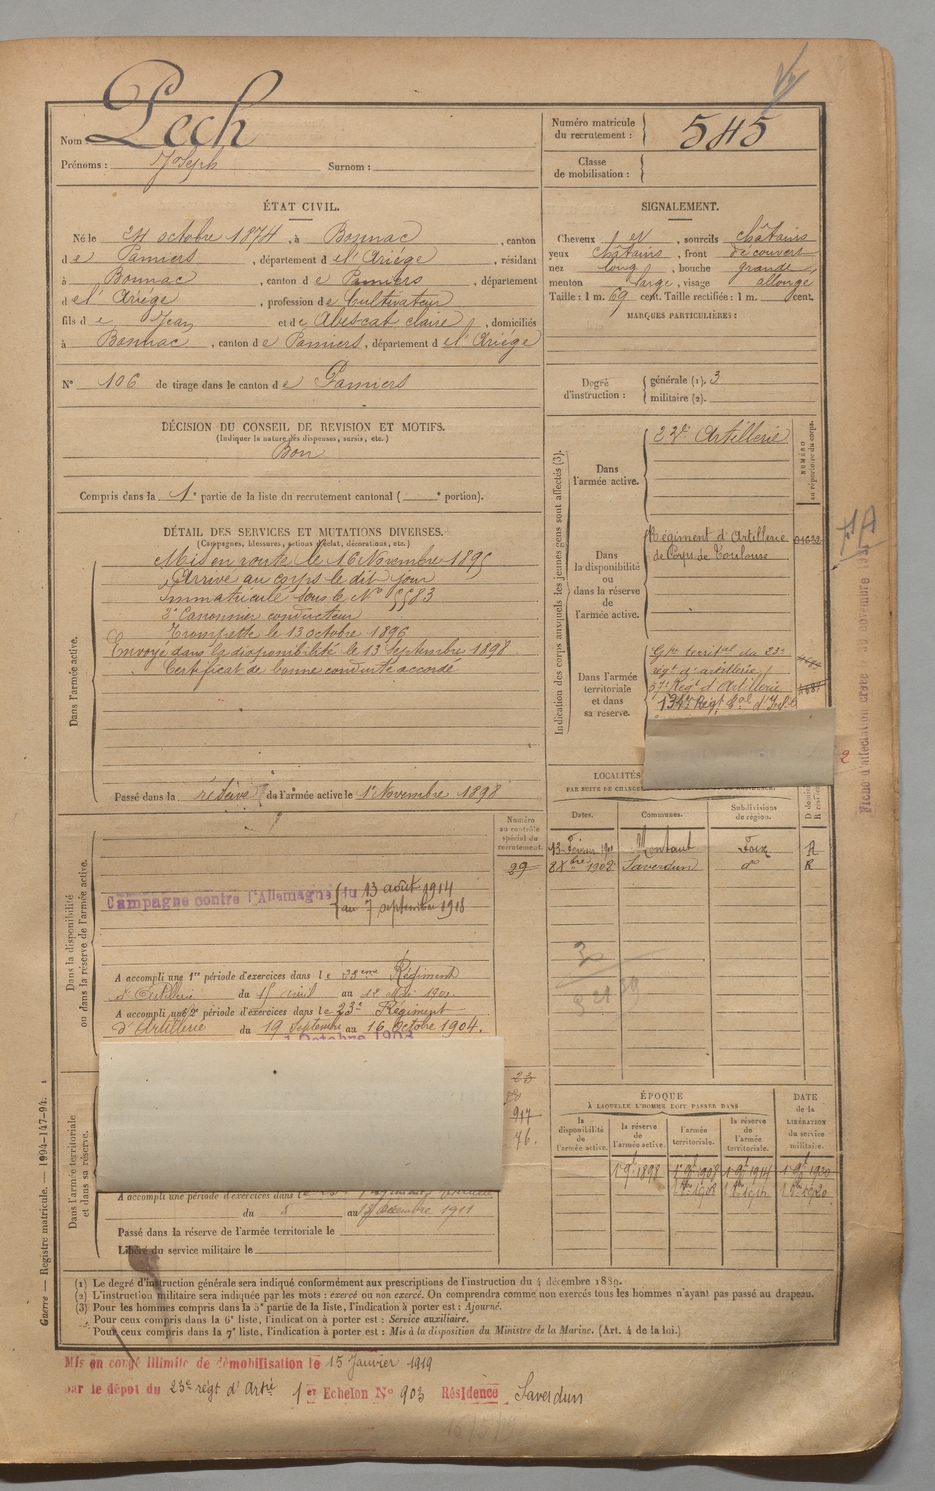 Nom Pech
Prénoms : Joseph Surnom :
Numéro matricule du recrutement : 545
Classe de mobilisation :
ÉTAT CIVIL.
Né le 24 octobre 1874, à Bonnac, canton
de Pamiers, département de l'Ariége, résidant
à Bonnac, canton de Pamiers, département
de l'Ariége, profession de Cultivateur
fils de Jean et de Abescat claire, domiciliés
à Bonnac, canton de Pamiers, département de l'Ariége
N° 106 de tirage dans le canton de Pamiers
SIGNALEMENT.
Cheveux, sourcils châtains
yeux châtains, front découvert
nez long, bouche grande
menton large, visage allongé
Taille : 1 m. 69 cent. Taille rectifiée : 1 m. cent.
MARQUES PARTICULIÈRES :
Degré d'instruction :
générale (1). 3
militaire (2).
DÉCISION DU CONSEIL DE REVISION ET MOTIFS.
(Indiquer la nature des dispenses, sursis, etc.)
Bon
Compris dans la 1e partie de la liste du recrutement cantonal ( e portion).
DÉTAIL DES SERVICES ET MUTATIONS DIVERSES.
(Campagnes, blessures, actions d'éclat, décorations, etc.)
Dans l'armée active.
Mis en route le 16 Novembre 1895
Arrivé au corps le dit jour
Immatriculé sous le N° 5583
2e Canonnier conducteur
Trompette le 13 octobre 1896
Envoyé dans la disponibilité le 13 Septembre 1898
Certificat de bonne conduite accordé
Passé dans la réserve de l'armée active le 1er Novembre 1898
Indication des corps auxquels les jeunes gens sont affectés (3).
NUMÉRO au répertoire du corps.
Dans l'armée active.
23e Artillerie
Dans la disponibilité ou dans la réserve de l'armée active.
Régiment d'Artillerie
de Corps de Toulouse
Dans l'armée territoriale et dans sa réserve.
Gpe territal du 23e
régt d'artillerie
57e Régt d'Artillerie
134e Régt tal d'Infie
Fiche d'affectation
LOCALITÉS
PAR SUITE DE CHANGE
Dates.
Communes.
Subdivisions de région.
13 Février 1901 Montaut Foix R
8 Xbre 1902 Saverdun do R
Dans la disponibilité ou dans la réserve de l'armée active.
Numéro au contrôle spécial du recrutement.
29
Campagne contre l'Allemagne du 13 août 1914
au 7 septembre 1918
A accompli une 1re période d'exercices dans le 23ème Régiment
d'Artillerie du 15 avril au 12 Mai 1901
A accompli une 2e période d'exercices dans le 23e Régiment
d'Artillerie du 19 Septembre au 16 Octobre 1904.
1 Octobre 1908
Dans l'armée territoriale et dans sa réserve.
23
917
76.
A accompli une période d'exercices dans
du 5 au Décembre 1911
Passé dans la réserve de l'armée territoriale le
Libéré du service militaire le
ÉPOQUE
À LAQUELLE L'HOMME DOIT PASSER DANS
la disponibilité de l'armée active.
la réserve de l'armée active.
l'armée territoriale.
la réserve de l'armée territoriale.
DATE de la LIBÉRATION du service militaire.
1er 9bre 1898 1er 9bre 1908 1er 9bre 1914 1er 9bre 1920
(1) Le degré d'instruction générale sera indiqué conformément aux prescriptions de l'instruction du 4 décembre 1889.
(2) L'instruction militaire sera indiquée par les mots : exercé ou non exercé. On comprendra comme non exercés tous les hommes n'ayant pas passé au drapeau.
(3) Pour les hommes compris dans la 5e partie de la liste, l'indication à porter est : Ajourné.
Pour ceux compris dans la 6e liste, l'indication à porter est : Service auxiliaire.
Pour ceux compris dans la 7e liste, l'indication à porter est : Mis à la disposition du Ministre de la Marine. (Art. 4 de la loi.)
Guerre — Registre matricule. — 1994-147-94.
Mis en congé illimité de démobilisation le 15 Janvier 1919
par le dépot du 23e régt d'Artie 1er Echelon N° 903 Résidence Saverdun